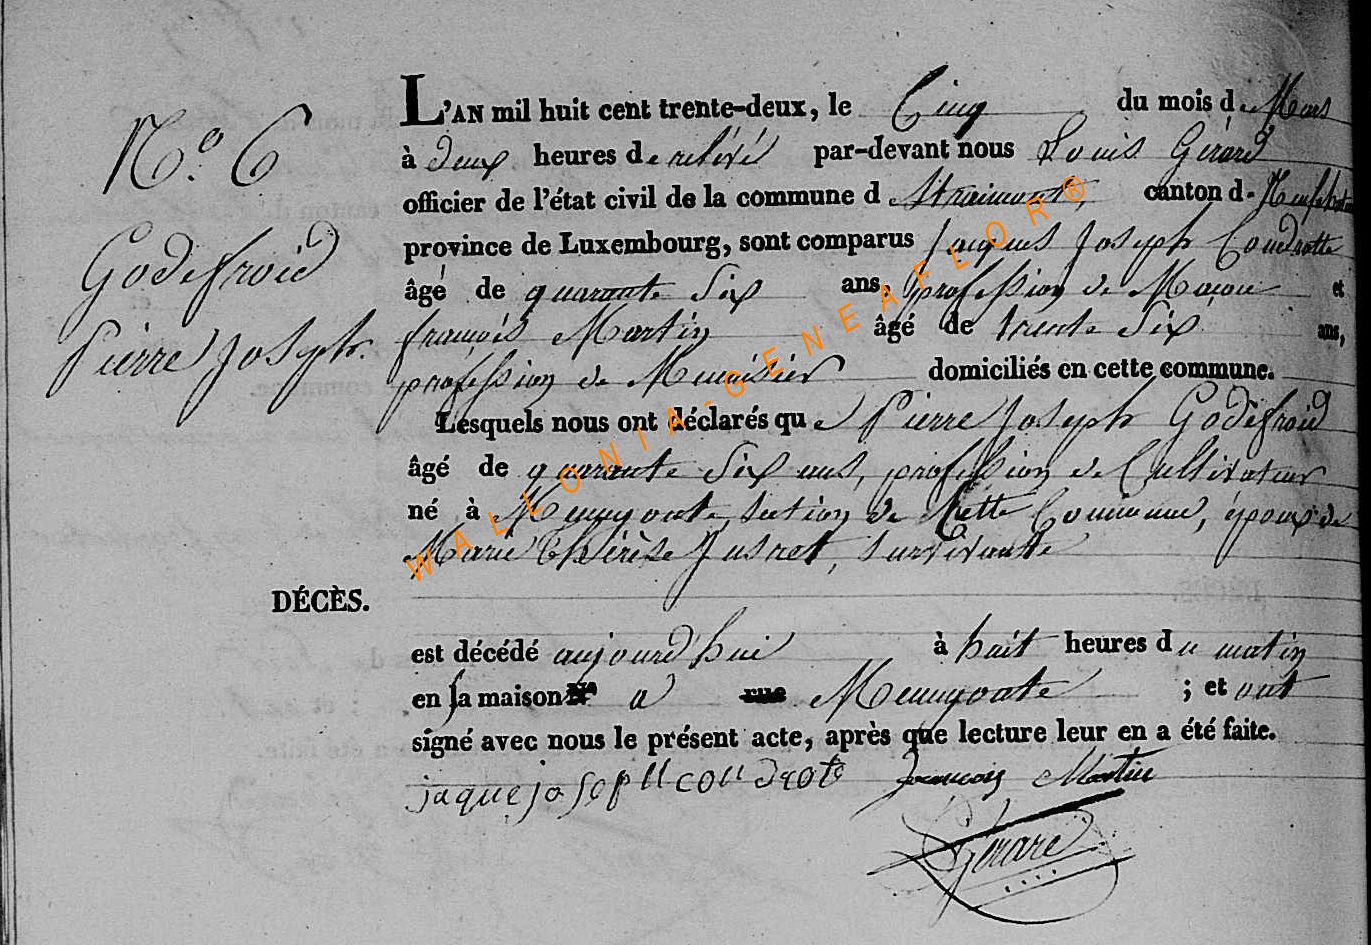 N.o 6
Godefroid
Pierre Joseph.
L'AN mil huit cent trente-deux, le Cinq du mois de Mars
à deux heures de relévé par-devant nous Louis Gérard
officier de l'état civil de la commune d Straimont, canton de
province de Luxembourg, sont comparus Jaques Joseph Coudrotte
âgé de quarante Six ans, profession de Maçon et
françois Martin âgé de trente Six ans,
profession de Menúisier domiciliés en cette commune.
Lesquels nous ont déclarés que Pierre Joseph Godefroid
âgé de quarante Six ans, profession de Cultivateur
né à Menugoutte, Section de Cette Commune, époux de
Marie Thérèse Jusret, Survivante
DÉCÈS.
est décédé aujourd'hui à huit heures du matin
en sa maison N° a rue Menugoutte ; et ont
signé avec nous le présent acte, après que lecture leur en a été faite.
jaque joseph coudrote françois Martin
Gérard
WALLONIA-GENEAFLOR®